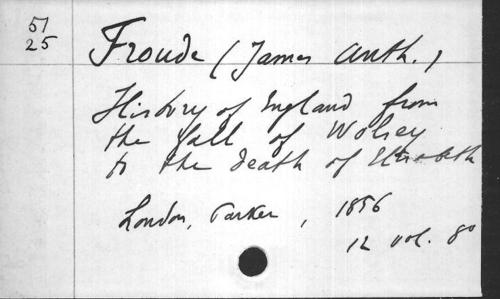 51
25
Froude (James Anth.)
History of England from
the fall of Wolsey
to the death of Elisabeth
London, Parker, 1856
12 vol. 8°